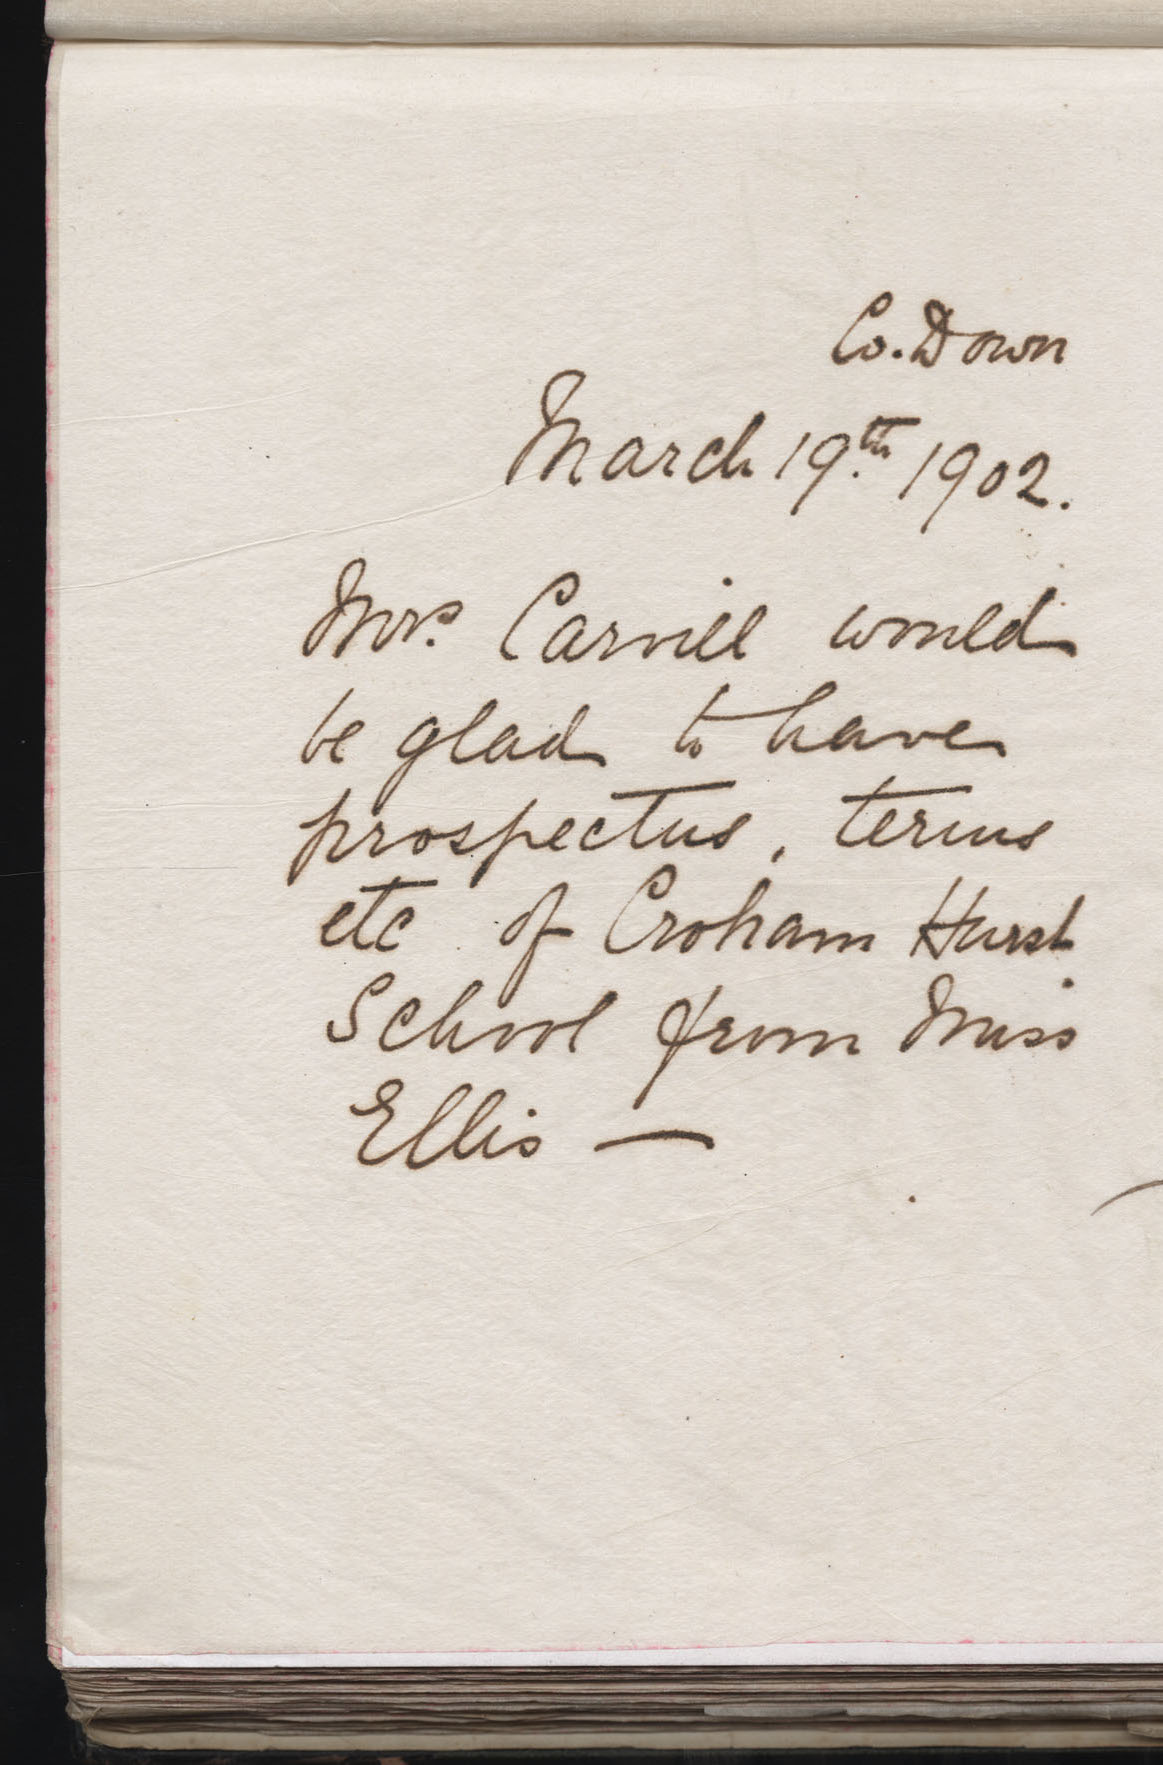 Co. Down
March 19th 1902.
Mrs. Carvill would
be glad to have
prospectus, terms
etc of Croham Hurst
School from Miss
Ellis —